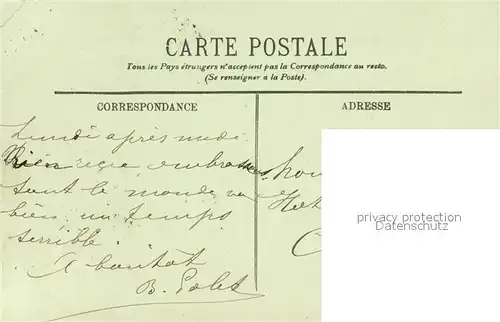 CARTE POSTALE
Tous les Pays étrangers n'acceptent pas la Correspondance au recto.
(Se renseigner à la Poste).
CORRESPONDANCE
ADRESSE
Lundi après midi
Rien reçu embrasse
tout le monde va
bien un temps
terrible
A bientôt
B.
privacy protection
Datenschutz